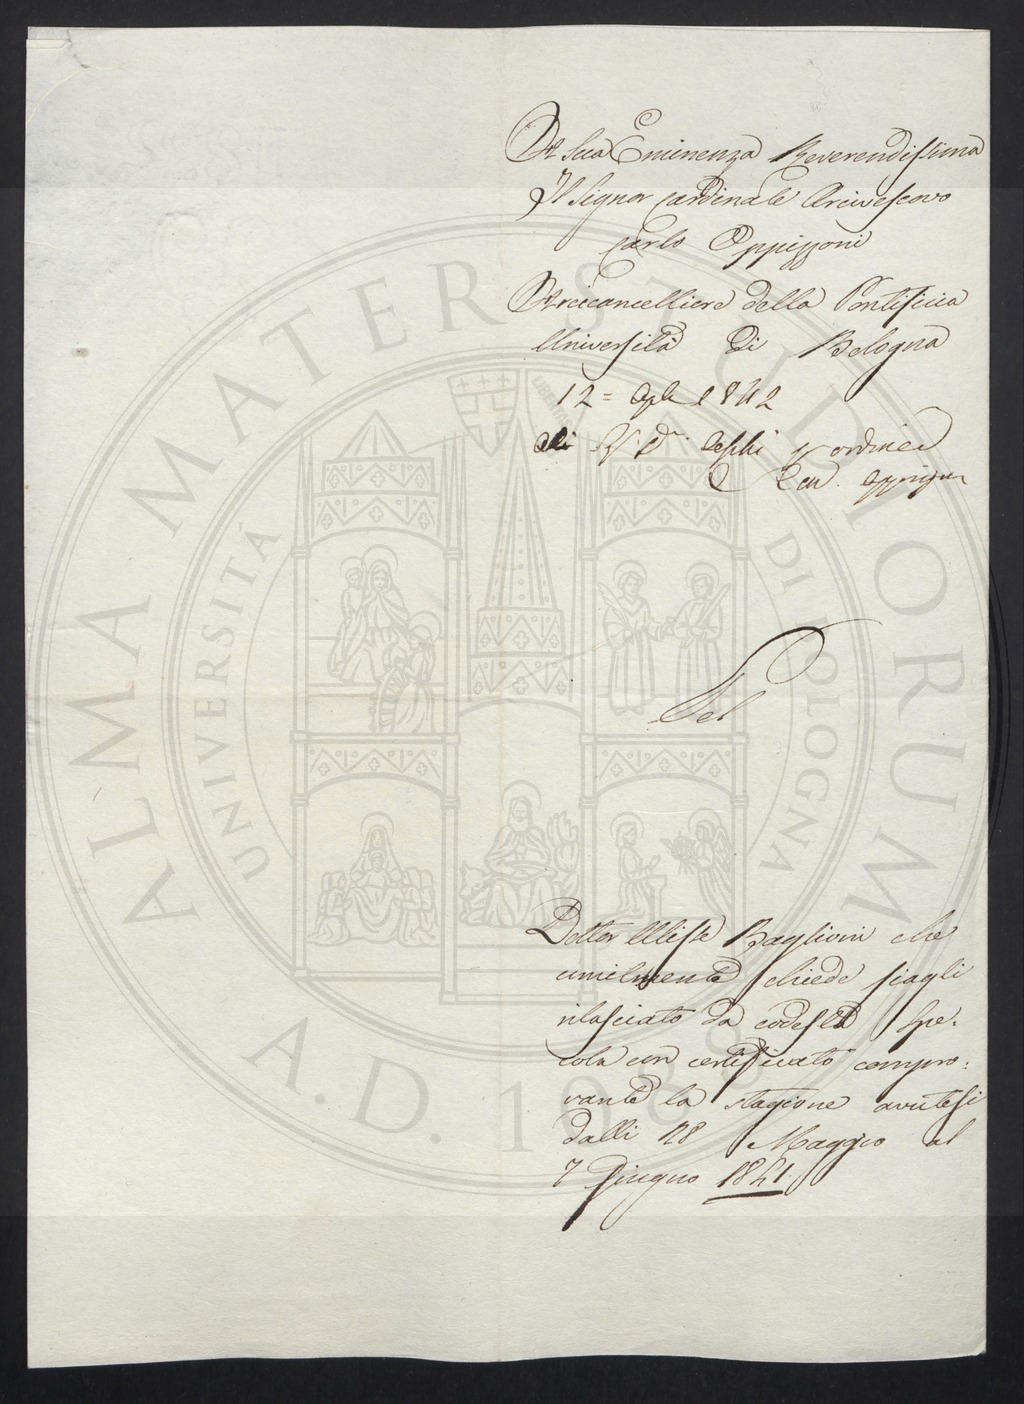 A Sua Eminenza Reverendissima
Il Signor Cardinale Arcivescovo
Carlo Oppizzoni
Arcicancelliere della Pontificia
Università di Bologna
12 = Aple 1842
ordine
Car. Oppizzoni
Pel
Dottor Ulisse Baglioni che
umilmente chiede siagli
rilasciato da codesta Spe-
cola un certificato compro-
vante la stagione avutesi
dalli 28 Maggio al
7 Giugno 1841.
ALMA MATER STUDIORUM
UNIVERSITÀ DI BOLOGNA
LIBERTAS
A.D. 1088